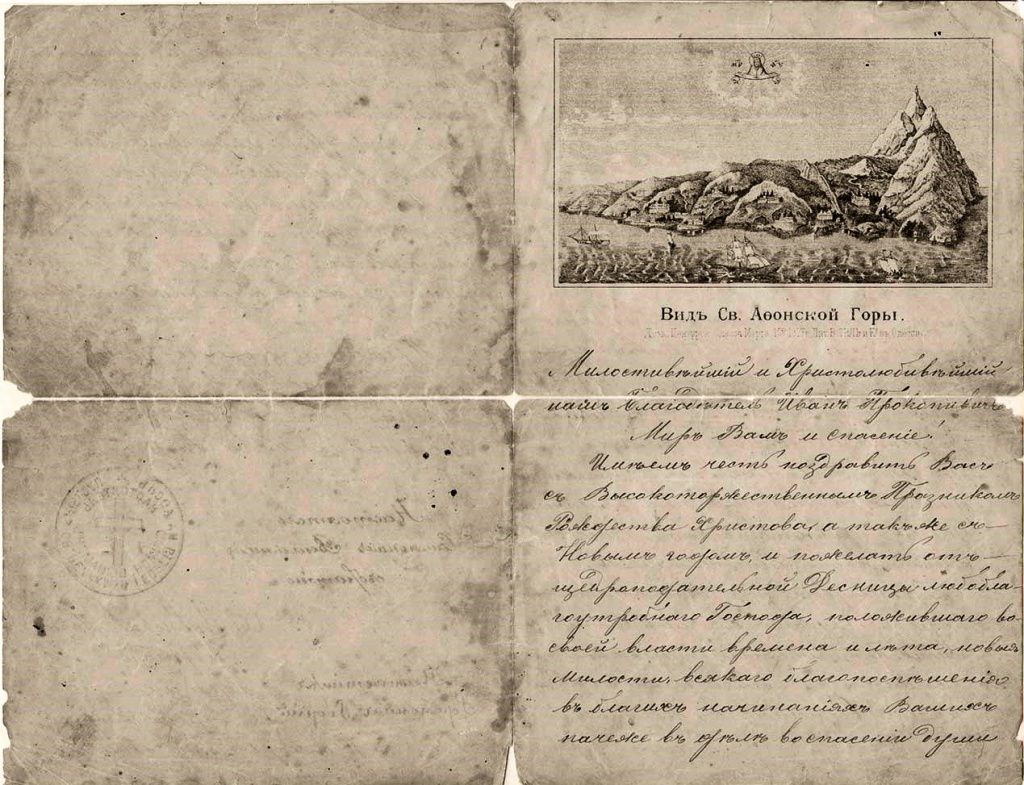 Видъ Св. Аѳонской Горы.
Милостивѣйшій и Христолюбивѣйшій
нашъ Благодѣтель Иванъ Прокопіевичъ
Миръ Вамъ и спасеніе!
Имѣемъ честь поздравить Васъ
съ Высокоторжественнымъ Празникомъ
Рождества Христова, а такъже съ
Новымъ годомъ, и пожелать отъ
щедроподательной Десницы любобла-
гоутробнаго Господа, положившаго во
своей власти времена и лѣта, новыя
милости, всякаго благопоспѣшенія
въ благихъ начинаніяхъ Вашихъ
паче же въ дѣлѣ воспасеніи души